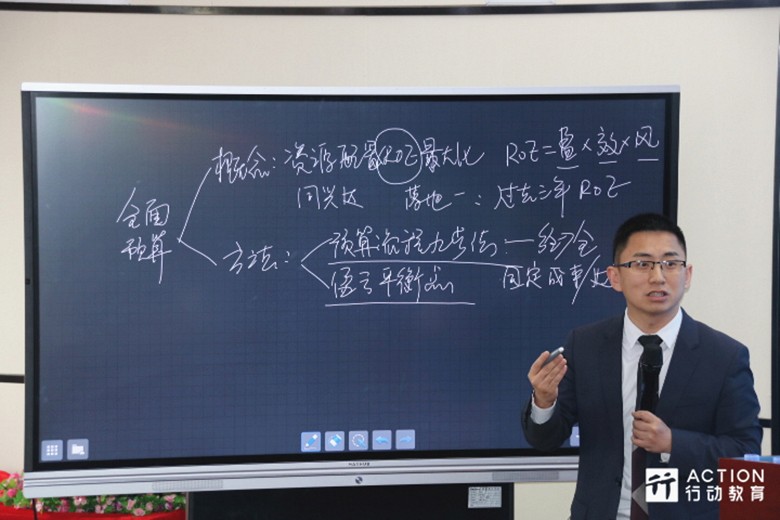 概念：资源配置ROE最大化 ROE=量×效×风
同兴达 落地一：过去三年ROE
全面
预算
方法：
预算流程九步法：一 经
保亏平衡点 固定成本/
ACTION
行动教育